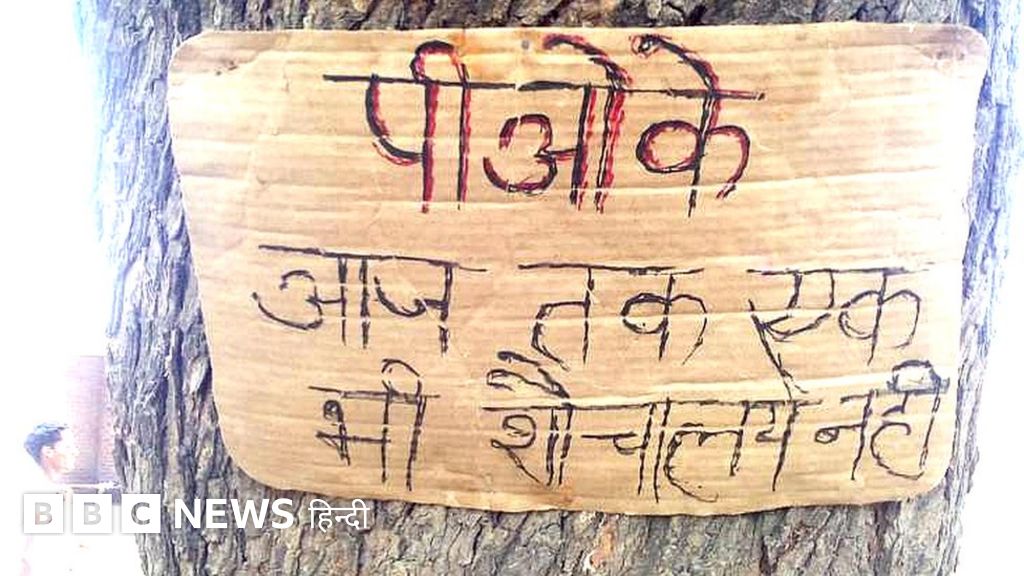 पीओके
आज तक एक
भी शौचालय नही
BBC NEWS हिन्दी